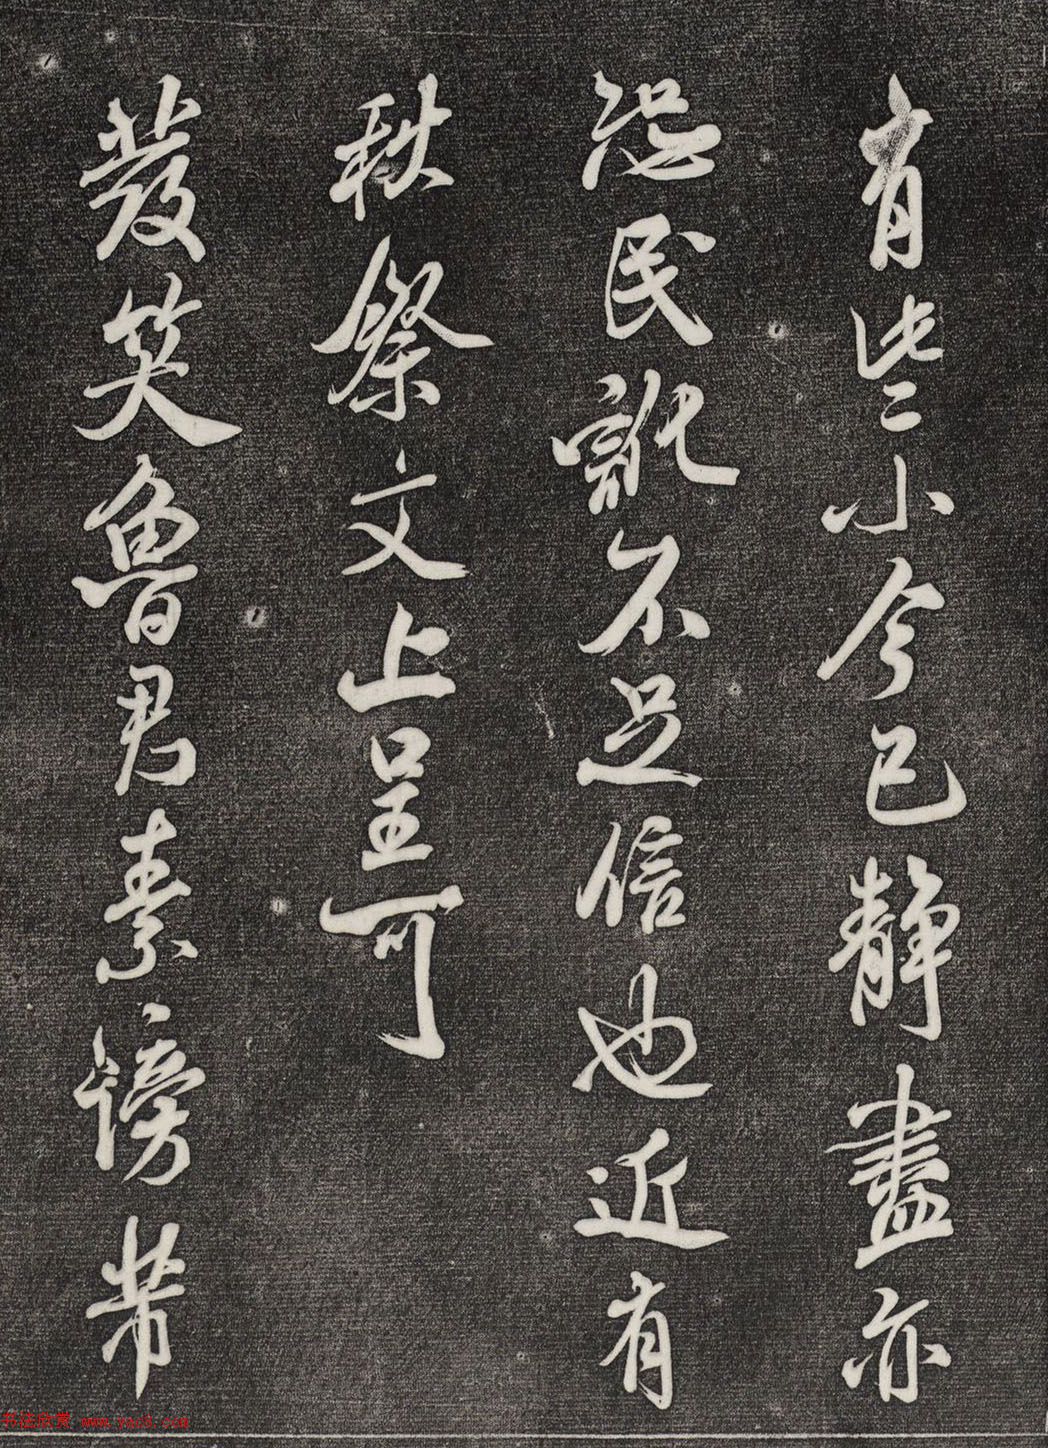 有些小今已静盡亦
民不足信也近有
秋祭文上呈可
發笑魯君素謗芾
书法欣赏 www.yac8.com